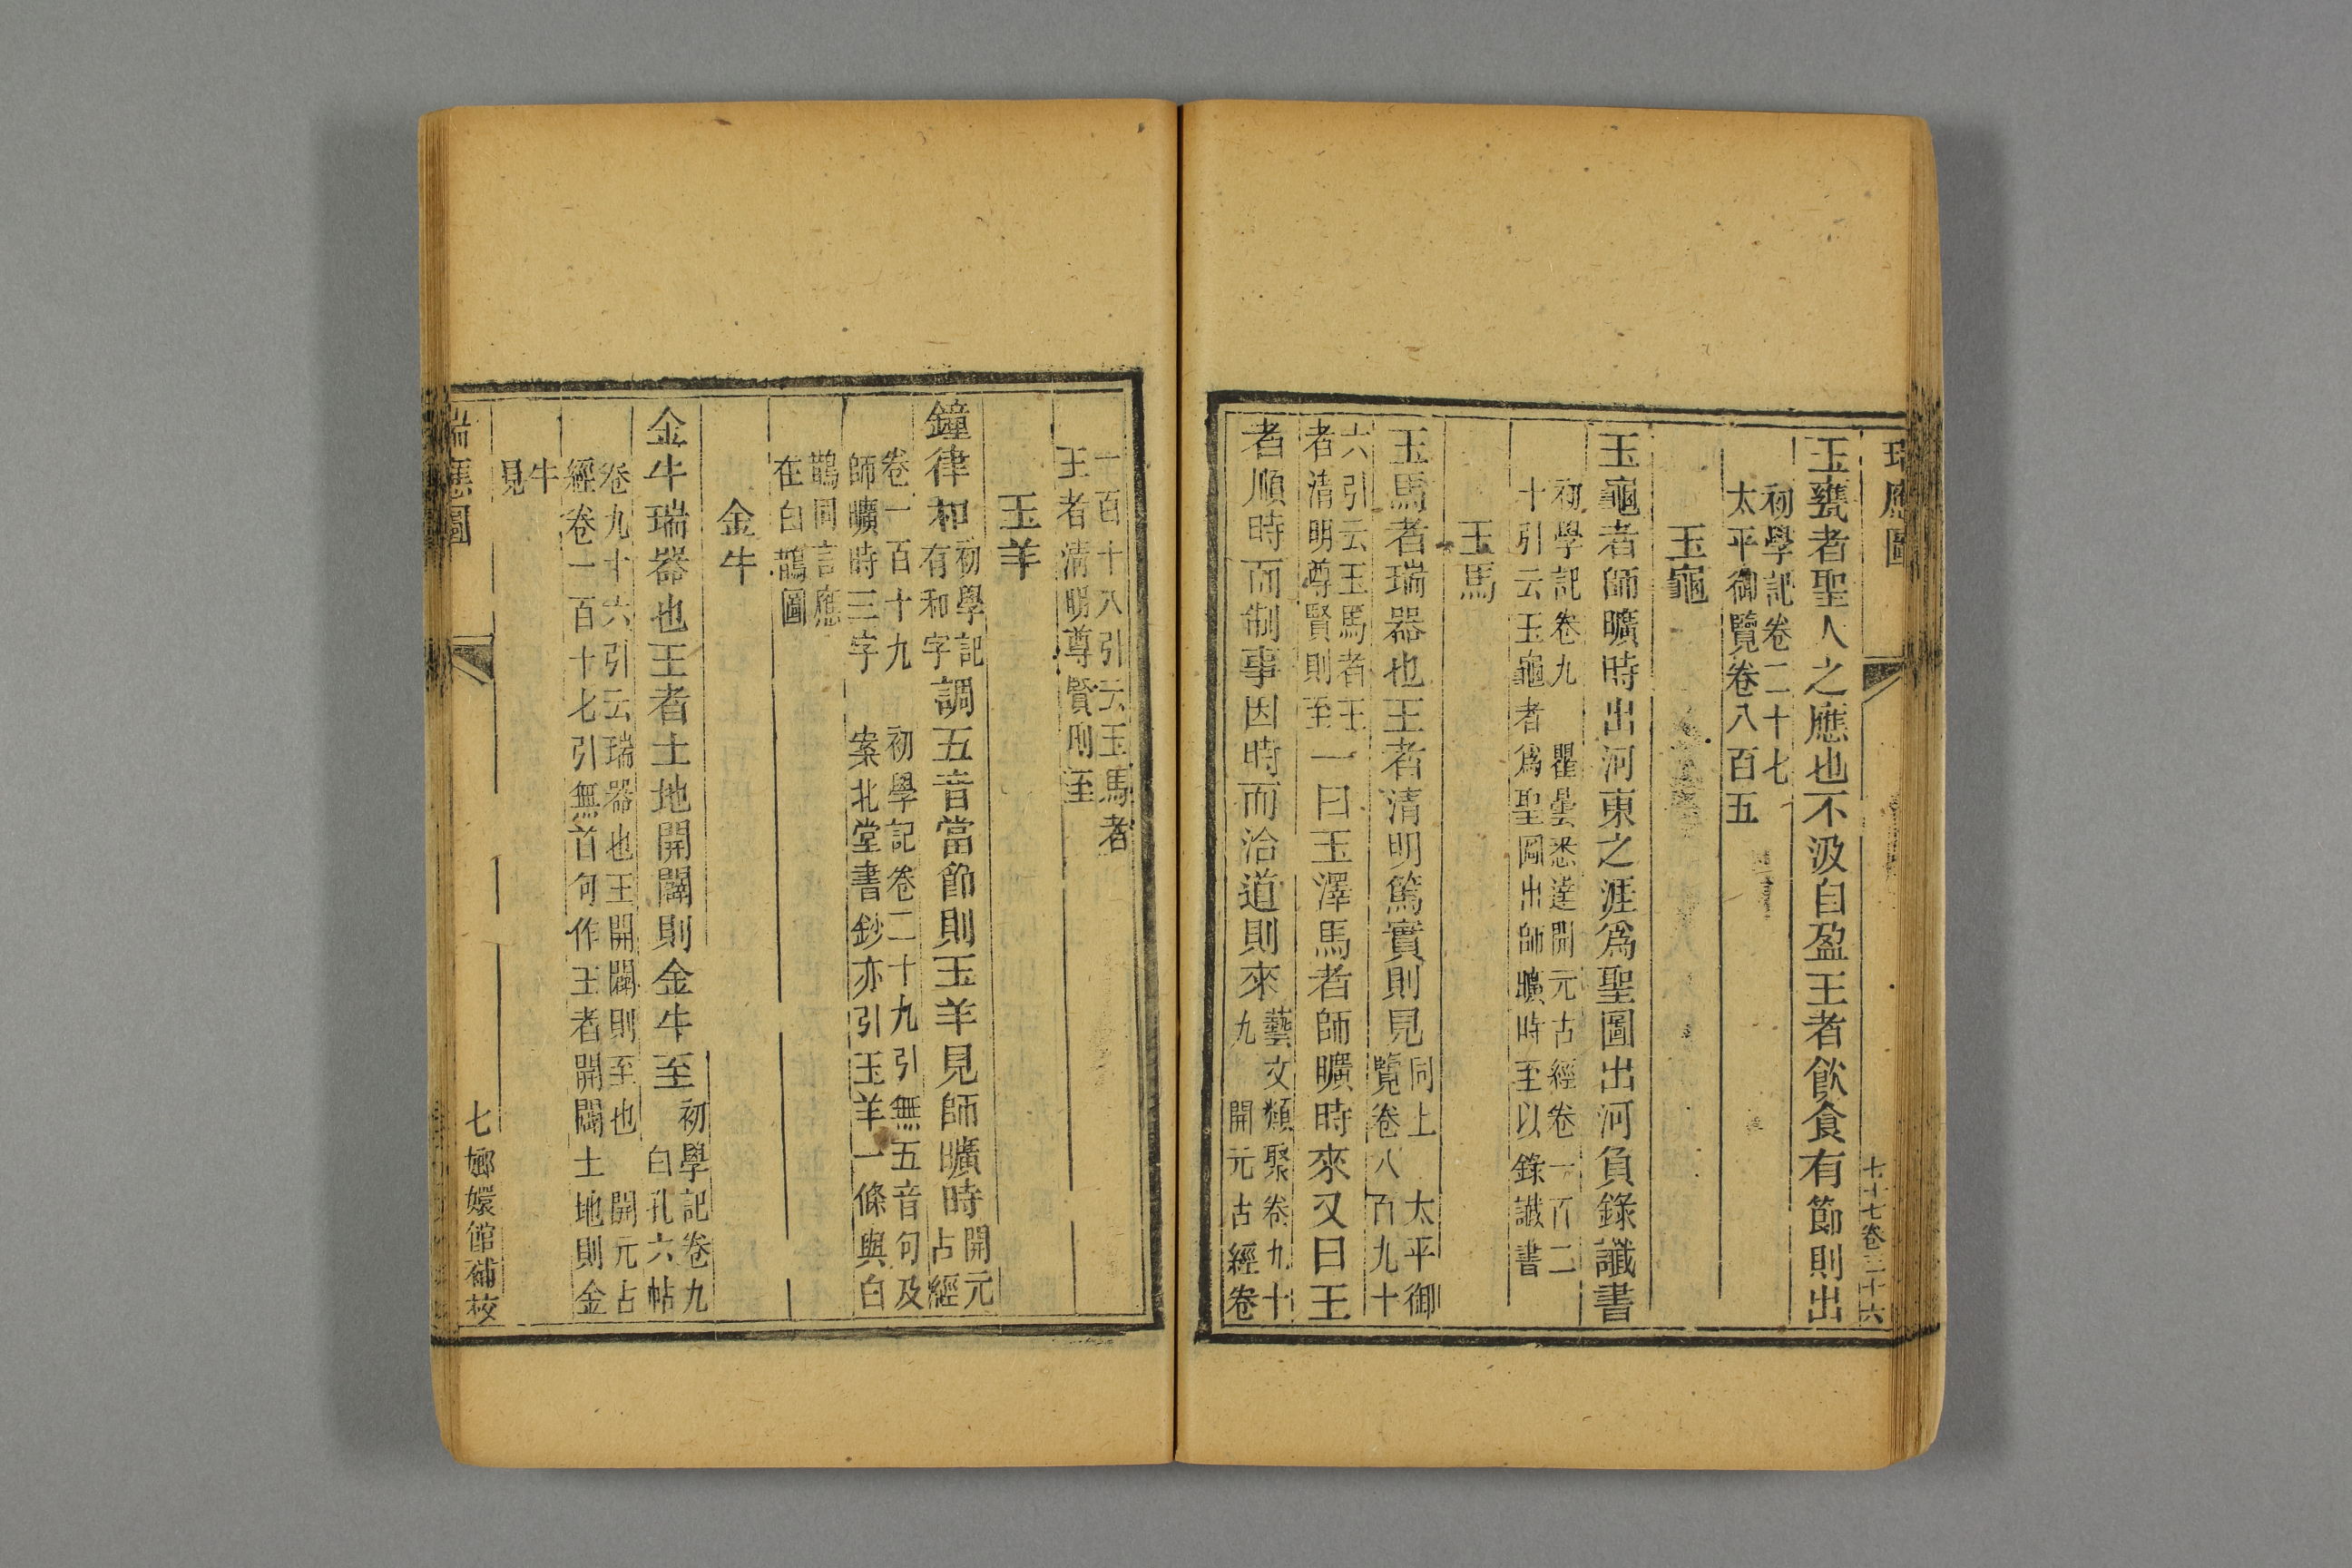 瑞應圖
七十七卷三十六
玉甕者聖人之應也不汲自盈王者飲食有節則出
初學記卷二十七
太平御覽卷八百五
玉龜
玉龜者師曠時出河東之涯爲聖圖出河負錄讖書
初學記卷九 瞿曇悉達開元占經卷一百二
十引云玉龜者爲聖圖出師曠時至以錄讖書
玉馬
玉馬者瑞器也王者清明篤實則見同上 太平御
覽卷八百九十
六引云玉馬者王
者清明尊賢則至一曰玉澤馬者師曠時來又曰王
者順時而制事因時而治道則來藝文類聚卷九十
九 開元占經卷
一百十八引云玉馬者
王者清明尊賢則至
玉羊
鐘律和初學記
有和字調五音當節則玉羊見師曠時開元
占經
卷一百十九 初學記卷二十九引無五音句及
師曠時三字 案北堂書鈔亦引玉羊一條與白
鵲同言應
在白鵲圖
金牛
金牛瑞器也王者土地開闢則金牛至初學記卷九
白孔六帖
卷九十六引云瑞器也王開闢則至也 開元占
經卷一百十七引無首句作王者開闢土地則金
牛
見
瑞應圖
七
嫏嬛館補校